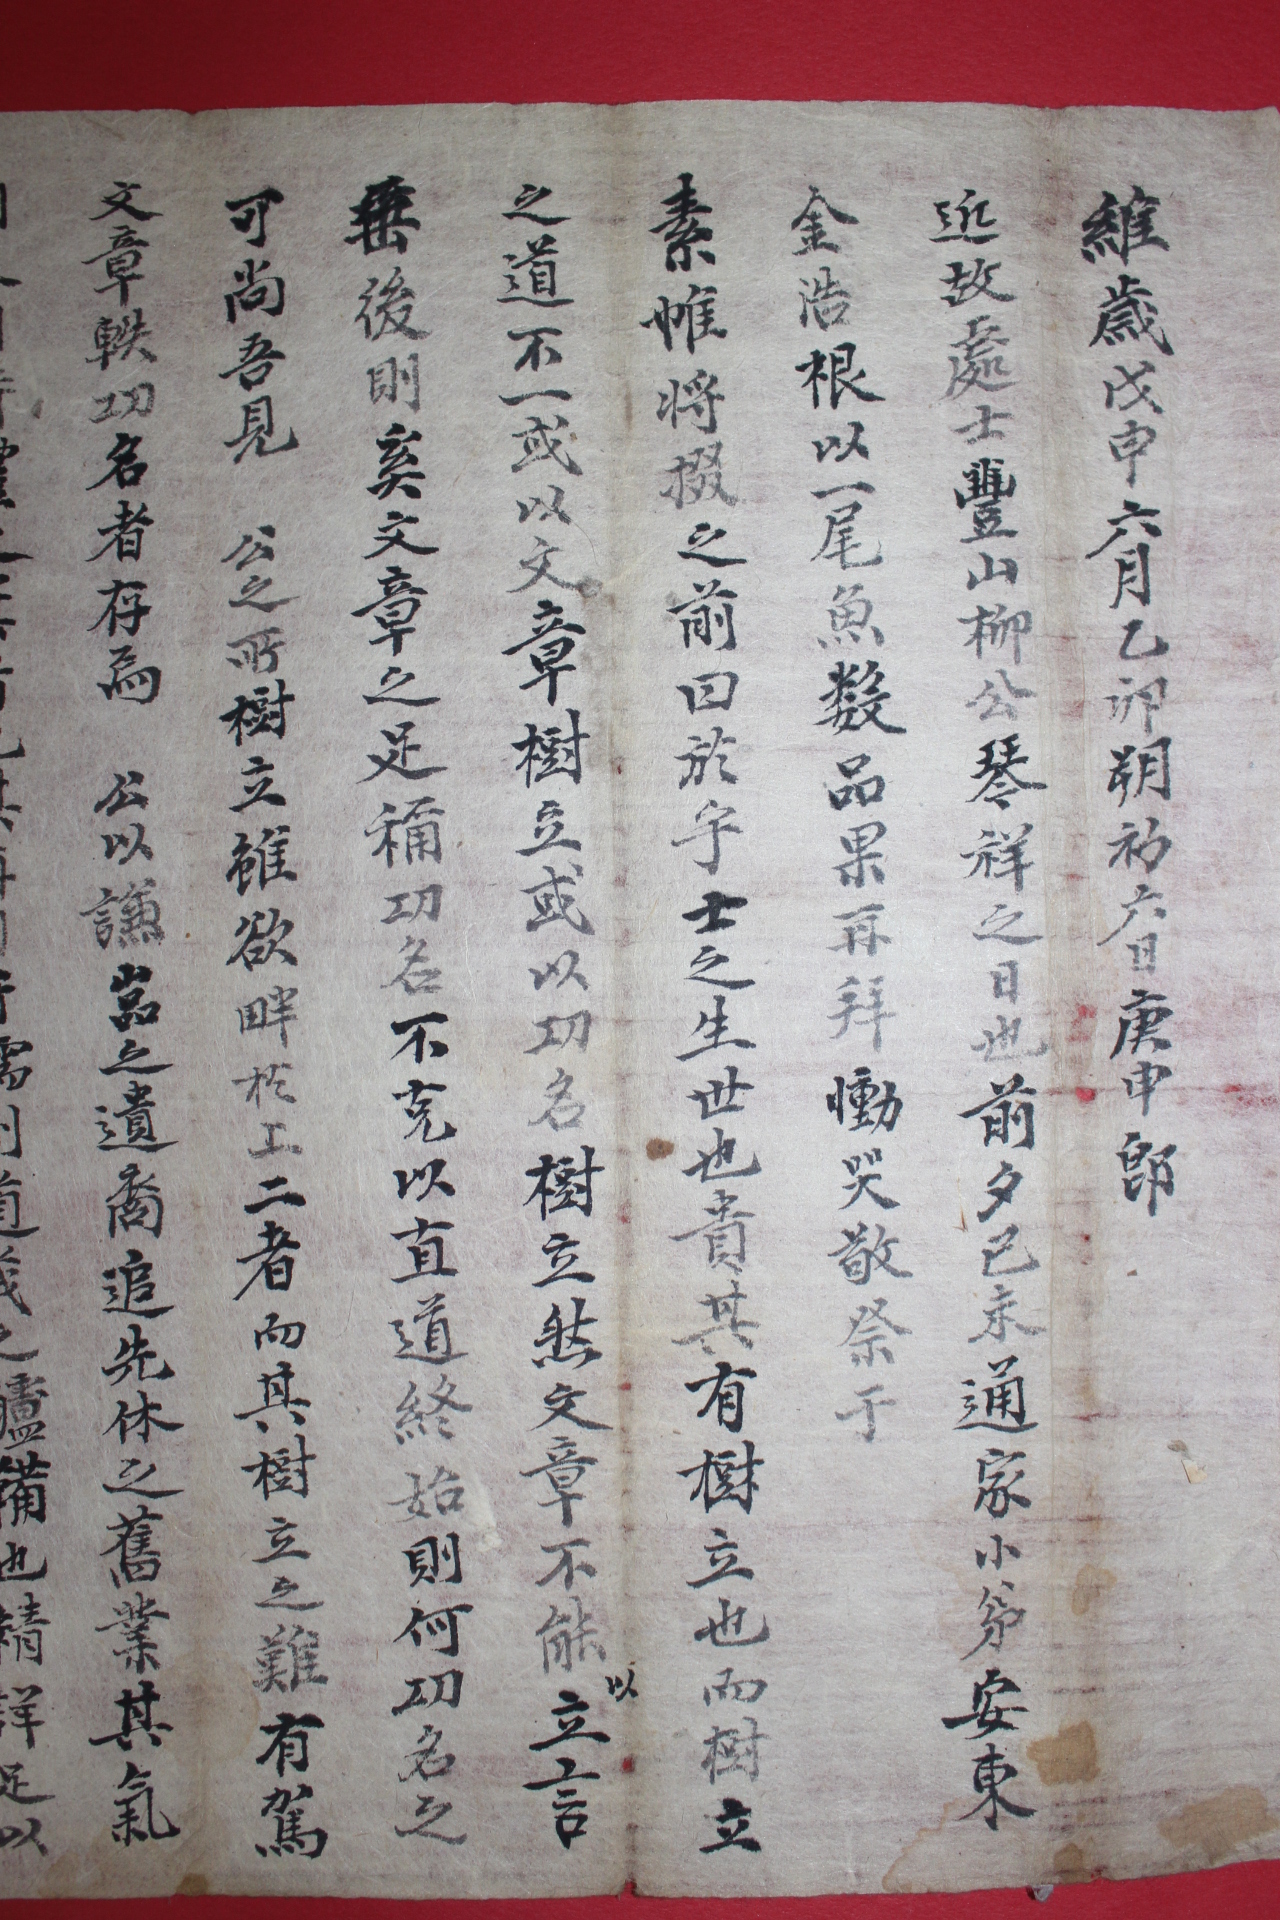 維歲戊申六月乙卯朔初六日庚申卽
近故處士豊山柳公琴祥之日也前夕己未通家小弟安東
金浩根以一尾魚数品果再拜慟哭敬祭于
素帷將掇之前曰於乎士之生世也貴其有樹立也而樹立
之道不一或以文章樹立或以功名樹立然文章不能以立言
垂後則奚文章之足稱功名不克以直道終始則何功名之
可尚吾見 公之所樹立雖欲畔於二者而其樹立之難有駕
文章軼功名者存焉 公以謙嵓之遺裔追先休之舊業其氣
道義之 備也精詳足以